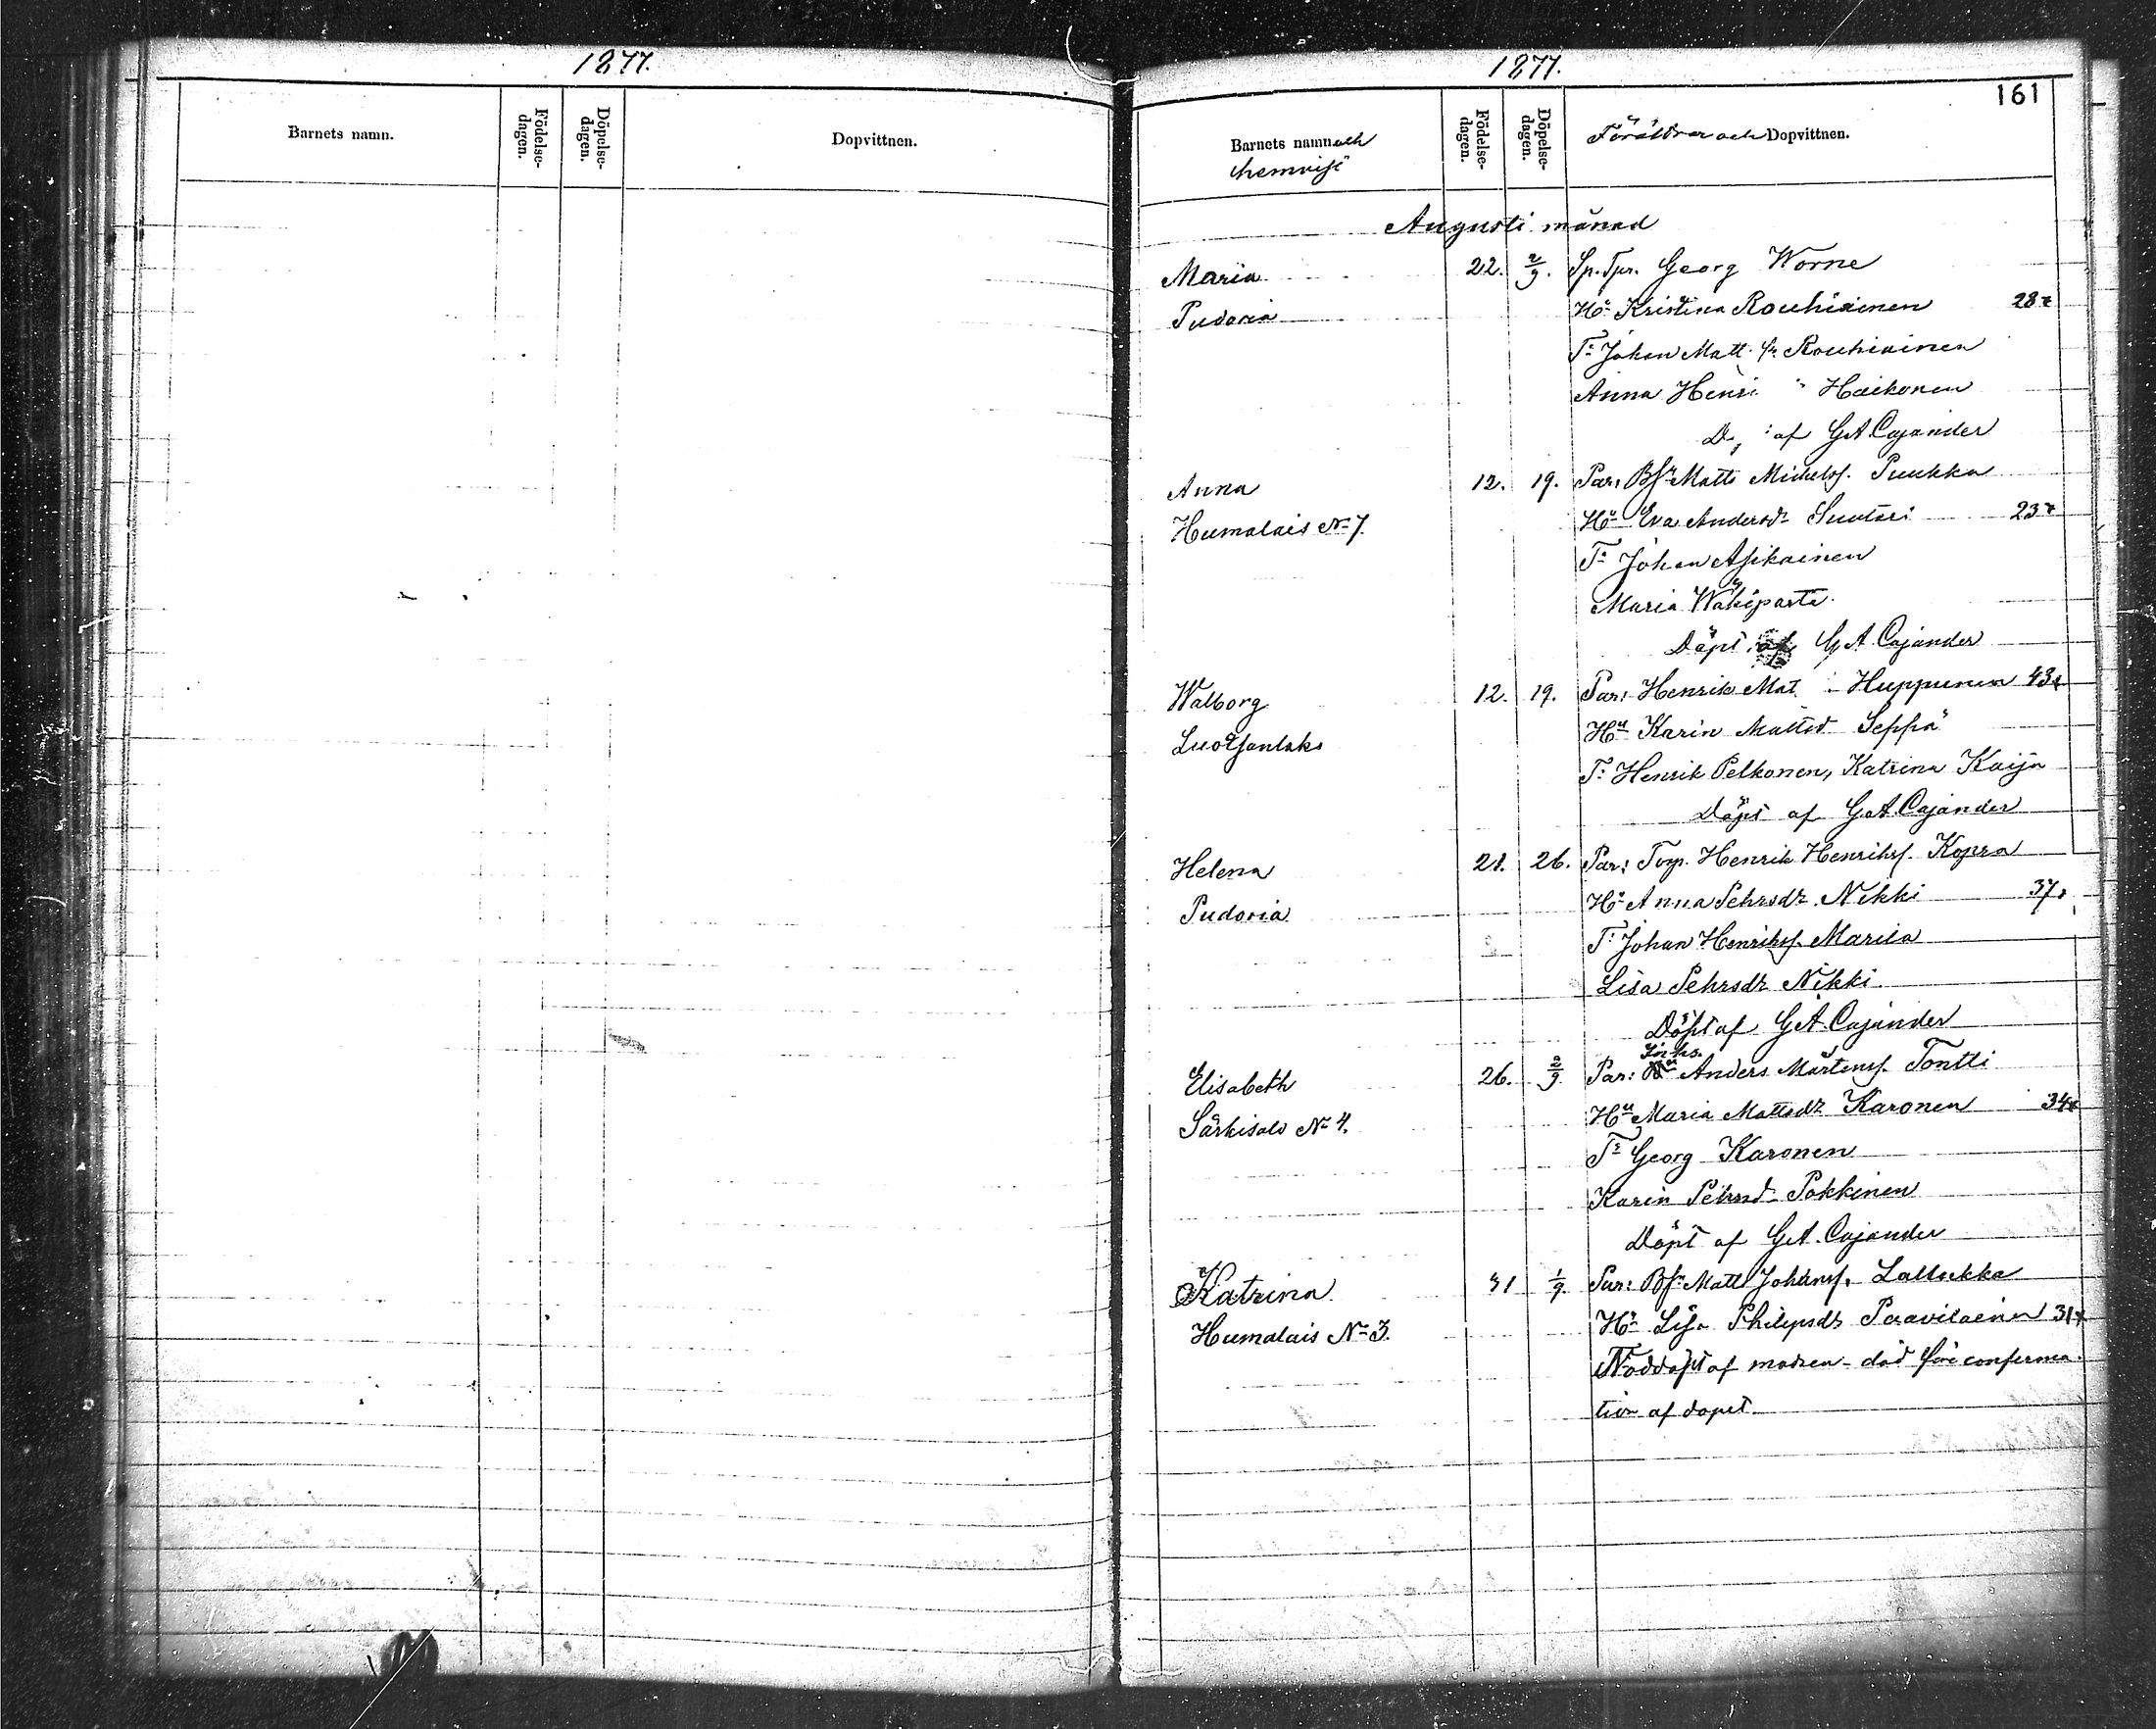 1877.
Barnets namn.
Födelse-dagen.
Döpelse-dagen.
Dopvittnen.
1877.
161
Barnets namn och hemvist
Födelse-dagen.
Döpelse-dagen.
Föräldrar och Dopvittnen.
Augusti månad
Maria 22. 2/9. Sp. Tpr. Georg Worne
Pudoria Hu Kristina Rouhiainen 28
T: Johan Matt. Rouhiainen
Anna Henr. Haikonen
D. af G A Cajander
Anna 12. 19. Par: Bfr Matts Michelss. Puukka
Humalais No 7. Hu Eva Andersdr Suutari 23
T: Johan Asikainen
Maria Wahiparta
Döpt af G A Cajander
Walborg 12. 19. Par: Henrik Mat. Huppunen 43
Hu Karin Mattsd Seppä
T: Henrik Pelkonen, Katrina Kaija
Döpt af G. A. Cajander
Helena 21. 26. Par: Torp. Henrik Henrikss. Kopra
Pudoria Hu Anna Pehrsdr Nikki 37
T: Johan Henrikss. Marila
Lisa Pehrsdr Nikki
Döpt af G A Cajander
Inhs.
Elisabeth 26. 2/9 Par: Anders Mårtenss. Tontti
Särkisalo No 4. Hu Maria Mattsdr Karonen 34
T: Georg Karonen
Karin Pehrsd Pokkinen
Döpt af G. A. Cajander
Katrina 31 1/9. Par: Bfr Matts Johanss. Lallukka
Humalais No 3. Hu Lisa Philipsdr Paavilainen 31
Nöddöpt af modren - död före conferma-
tion af dopet.